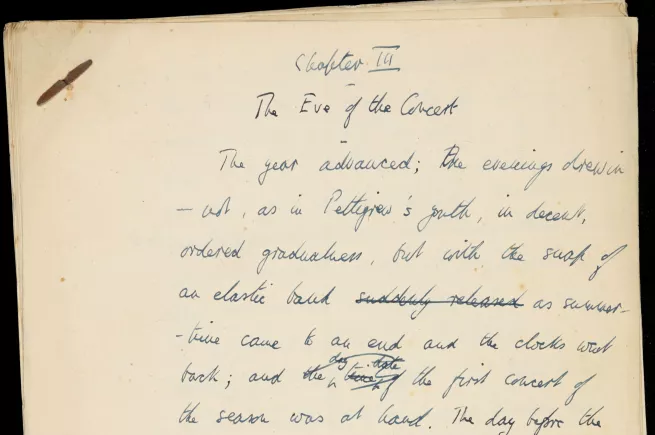 Chapter III
The Eve of the Concert
The year advanced; the evenings drew in
– not, as in Pettigrew's youth, in decent,
ordered gradualness, but with the snap of
an elastic band suddenly released as summer-
-time came to an end and the clocks went
back; and the day date time of the first concert of
the season was at hand. The day before the